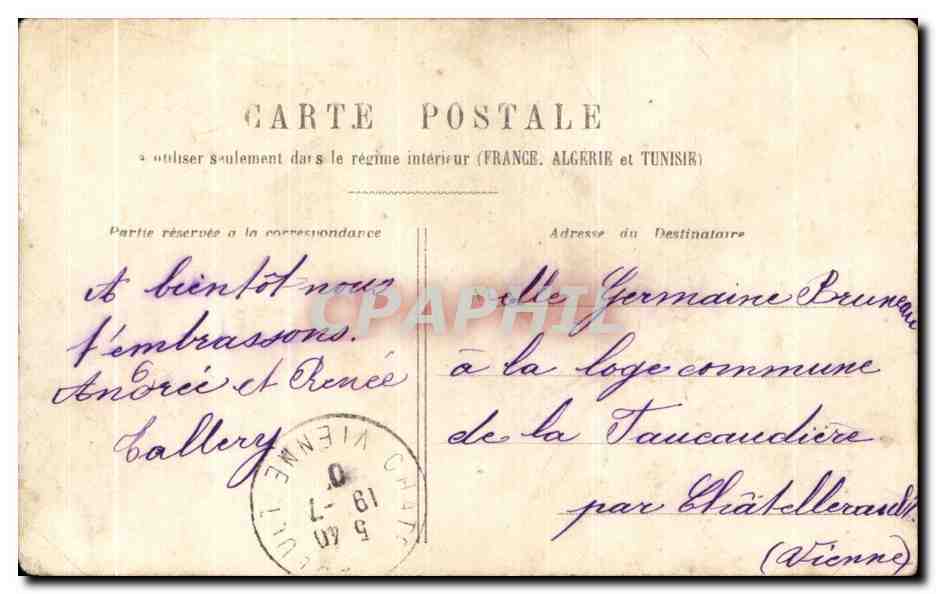 CARTE POSTALE
à utiliser seulement dans le régime intérieur (FRANCE. ALGERIE et TUNISIE)
Partie réservée a la correspondance
A bientôt nous
t'embrassons.
Andrée et Renée
Tallery
Adresse du Destinataire
Mlle Germaine Bruneau
à la loge commune
de la Taucaudière
par Châtellerault
(Vienne)
CPAPHIL
VIENNE
5 40
19 -7